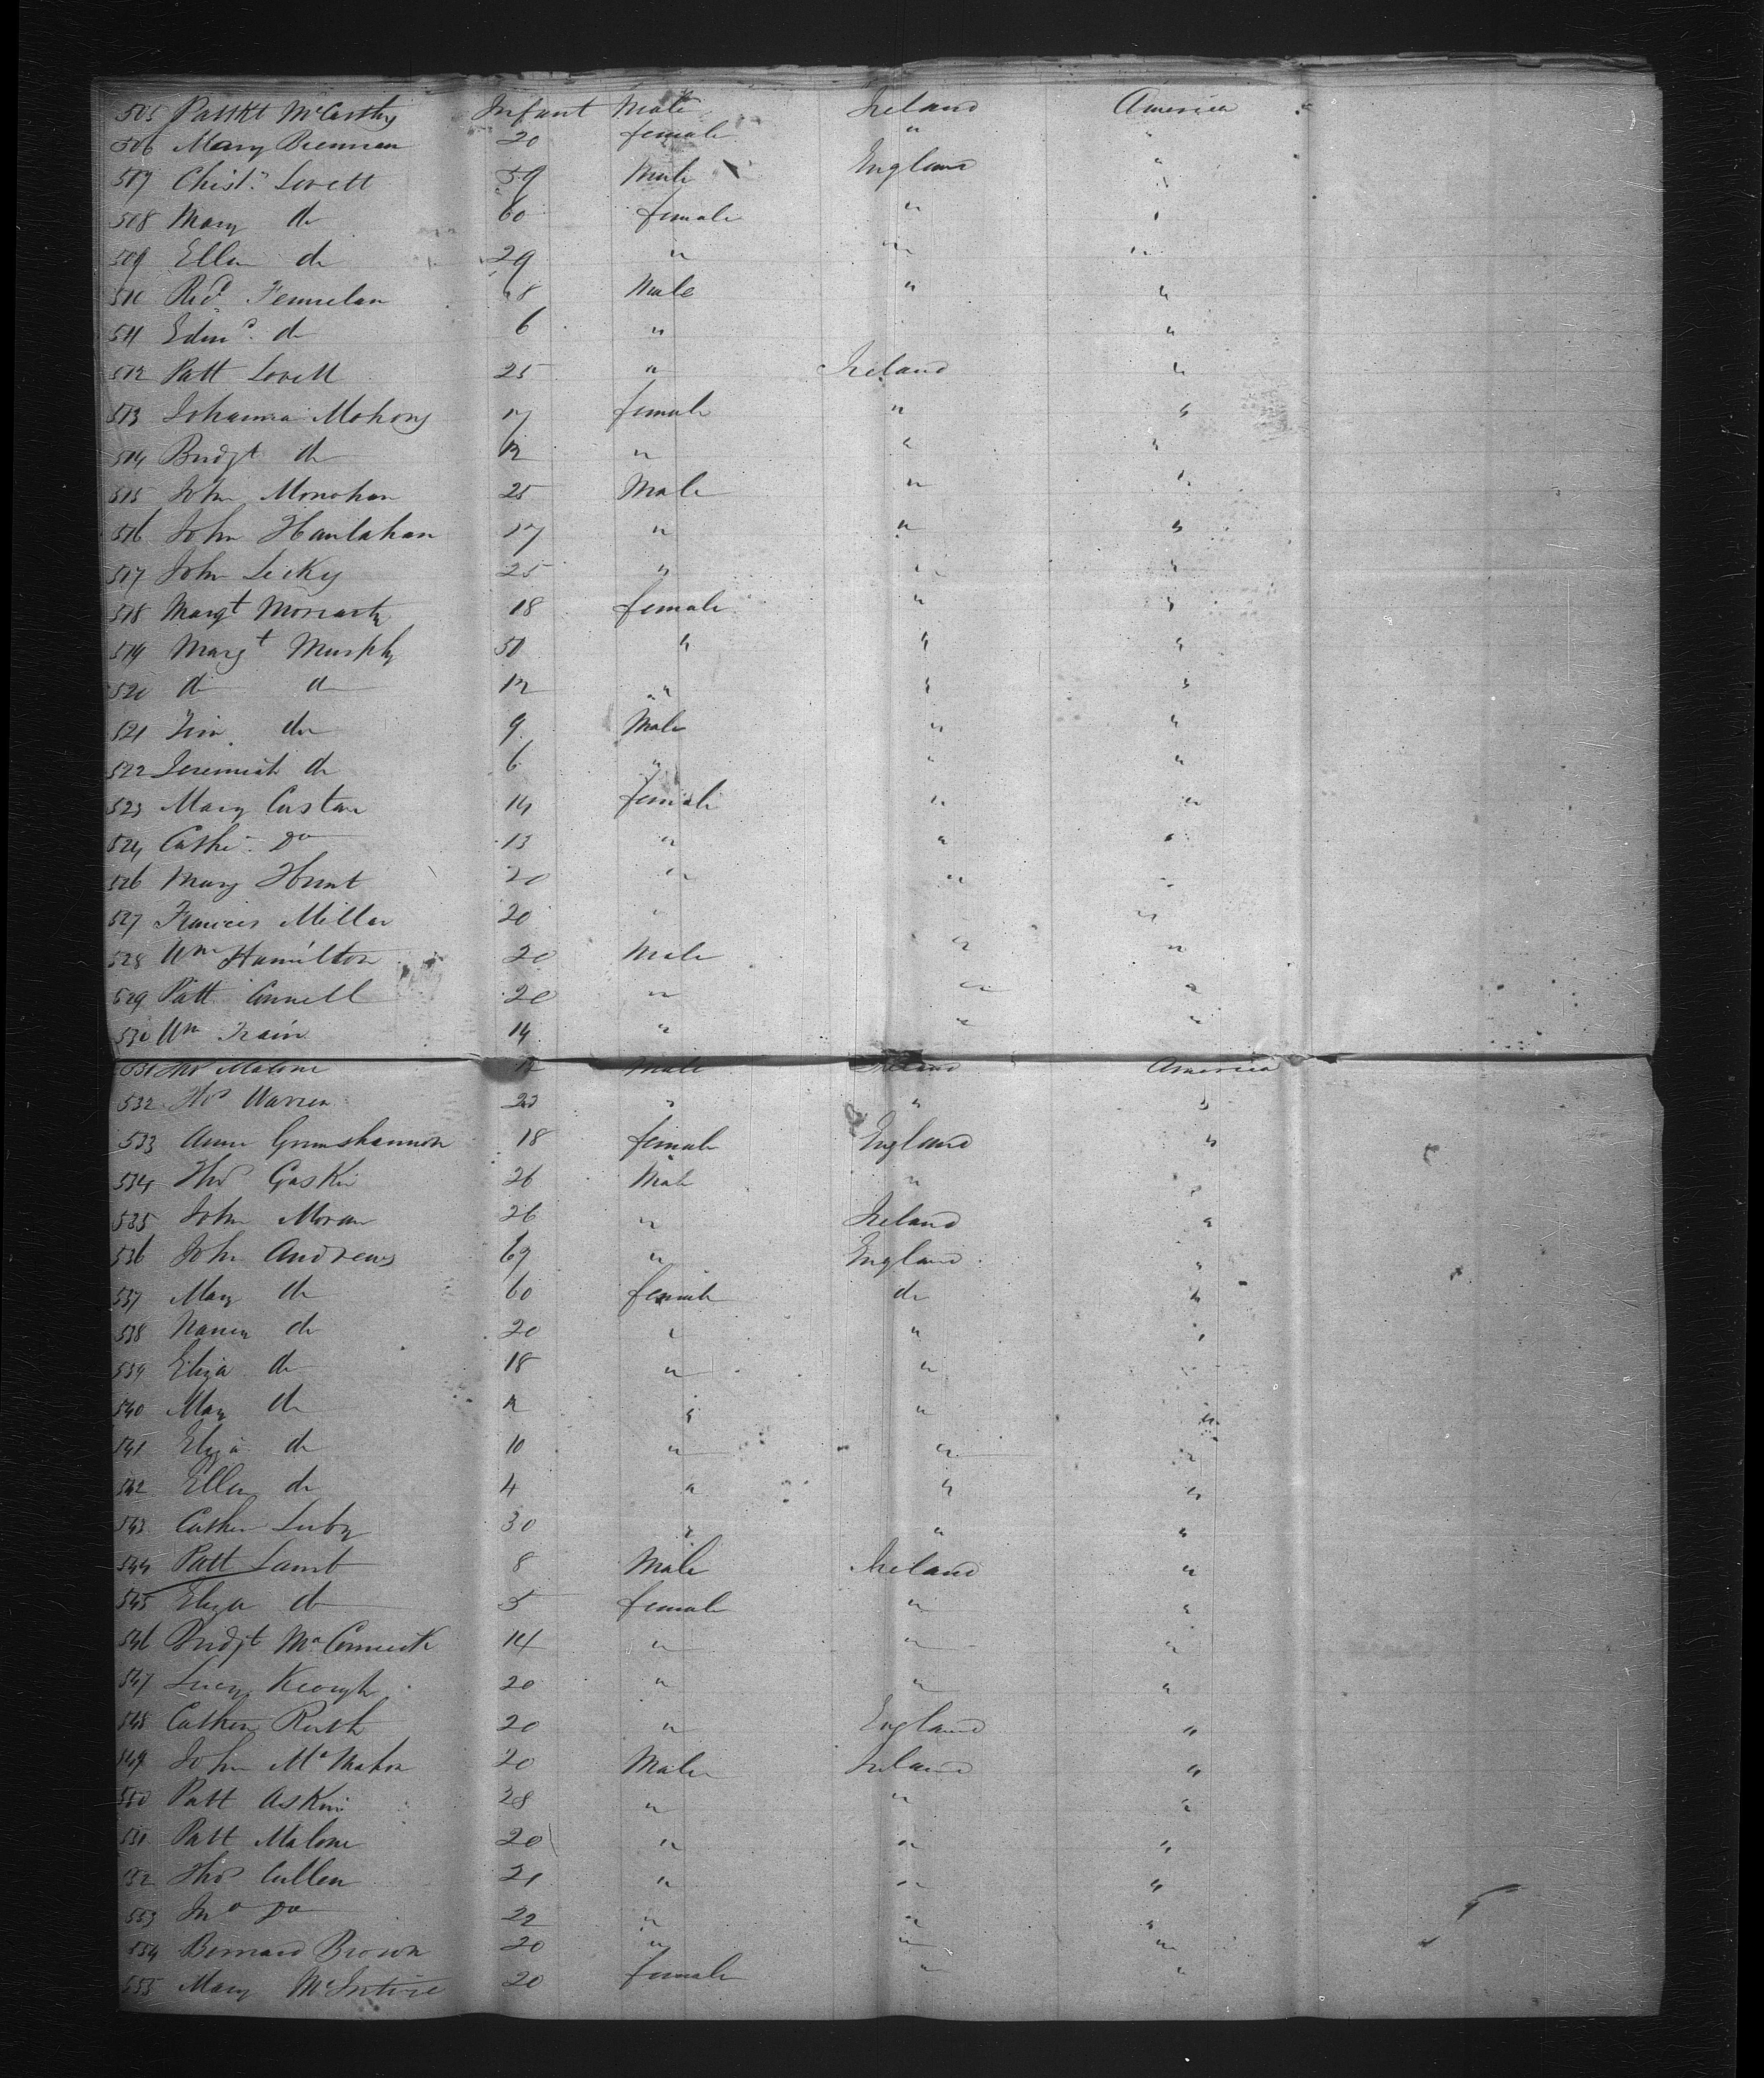 505 Patrkt McCarthy Infant Male Ireland America
506 Mary Brennan 20 female " "
507 Christr Lovett 59 Male England "
508 Mary do 60 female " "
509 Ellen do 29 " " "
510 Ricd Fennelan 48 Male " "
511 Edmd do 6 " "
512 Patt Lovett 25 " Ireland "
513 Johanna Mahony 17 female " "
514 Bridgt do 12 " " "
515 John Monohan 25 Male " "
516 John Hanlahan 17 " " "
517 John Lecky 25 " " "
518 Margt Moriarty 18 female " "
519 Margt Murphy 50 " " "
520 do do 12 " " "
521 Tim do 9 Male " "
522 Jeremiah do 6 " " "
523 Mary Costan 14 female " "
524 Cathe Do 13 " " "
526 Mary Hunt 20 " " "
527 Frances Millar 20 " "
528 Wm Hamilton 20 Male " "
529 Patt Connell 20 " " "
530 Wm Train 14 " " "
531 Thos Malone 12 Male Ireland America
532 Thos Warren 23 " " "
533 Anne 18 female England "
534 Thos Gaskin 26 Male " "
535 John Moran 26 " Ireland "
536 John Andrews 67 " England "
537 Mary do 60 female do "
538 do 20 " " "
539 Eliza do 18 " "
540 Mary do 12 " " "
541 Eliza do 10 " " "
542 Ellen do 4 " " "
543 Cathen Luby 30 " " "
544 Patt Lamb 8 Male Ireland "
545 Eliza do 5 female " "
546 Bridjt McCormick 14 " " "
547 Lucy Keough 20 " " "
548 Cathen Rush 20 " England "
549 John McMahon 20 Male Ireland "
550 Patt Askin 28 " " "
551 Patt Malone 20 " " "
552 Thos Cullen 21 " " "
553 Jno Do 22 " " "
554 Bernard Brown 20 " " "
555 Mary McIntire 20 female " "